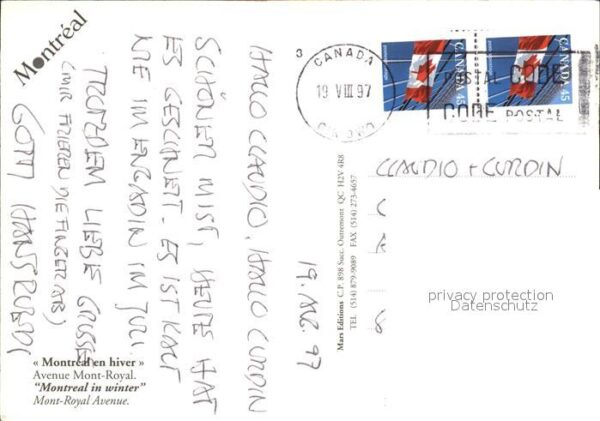 Montréal
19. AUG. 97
HALLO CLAUDIO, HALLO CURDIN
SCHÖNER MIST, HEUTE HAT
ES GESCHNEIT. ES IST KALT
WIE IM ENGADIN IM JULI.
TROTZDEM LIEBE GRÜSSE
(MIR FRIEREN DIE FINGER AB)
GOTTI HANSRUEDI
« Montréal en hiver »
Avenue Mont-Royal.
"Montreal in winter"
Mont-Royal Avenue.
Mars Editions C.P. 898 Succ. Outremont QC H2V 4R8
TEL (514) 879-9089 FAX (514) 273-4657
3
CANADA
19 VIII 97
POSTAL CODE
CODE POSTAL
CANADA 45
CANADA 45
CLAUDIO + CURDIN
C
8
privacy protection
Datenschutz